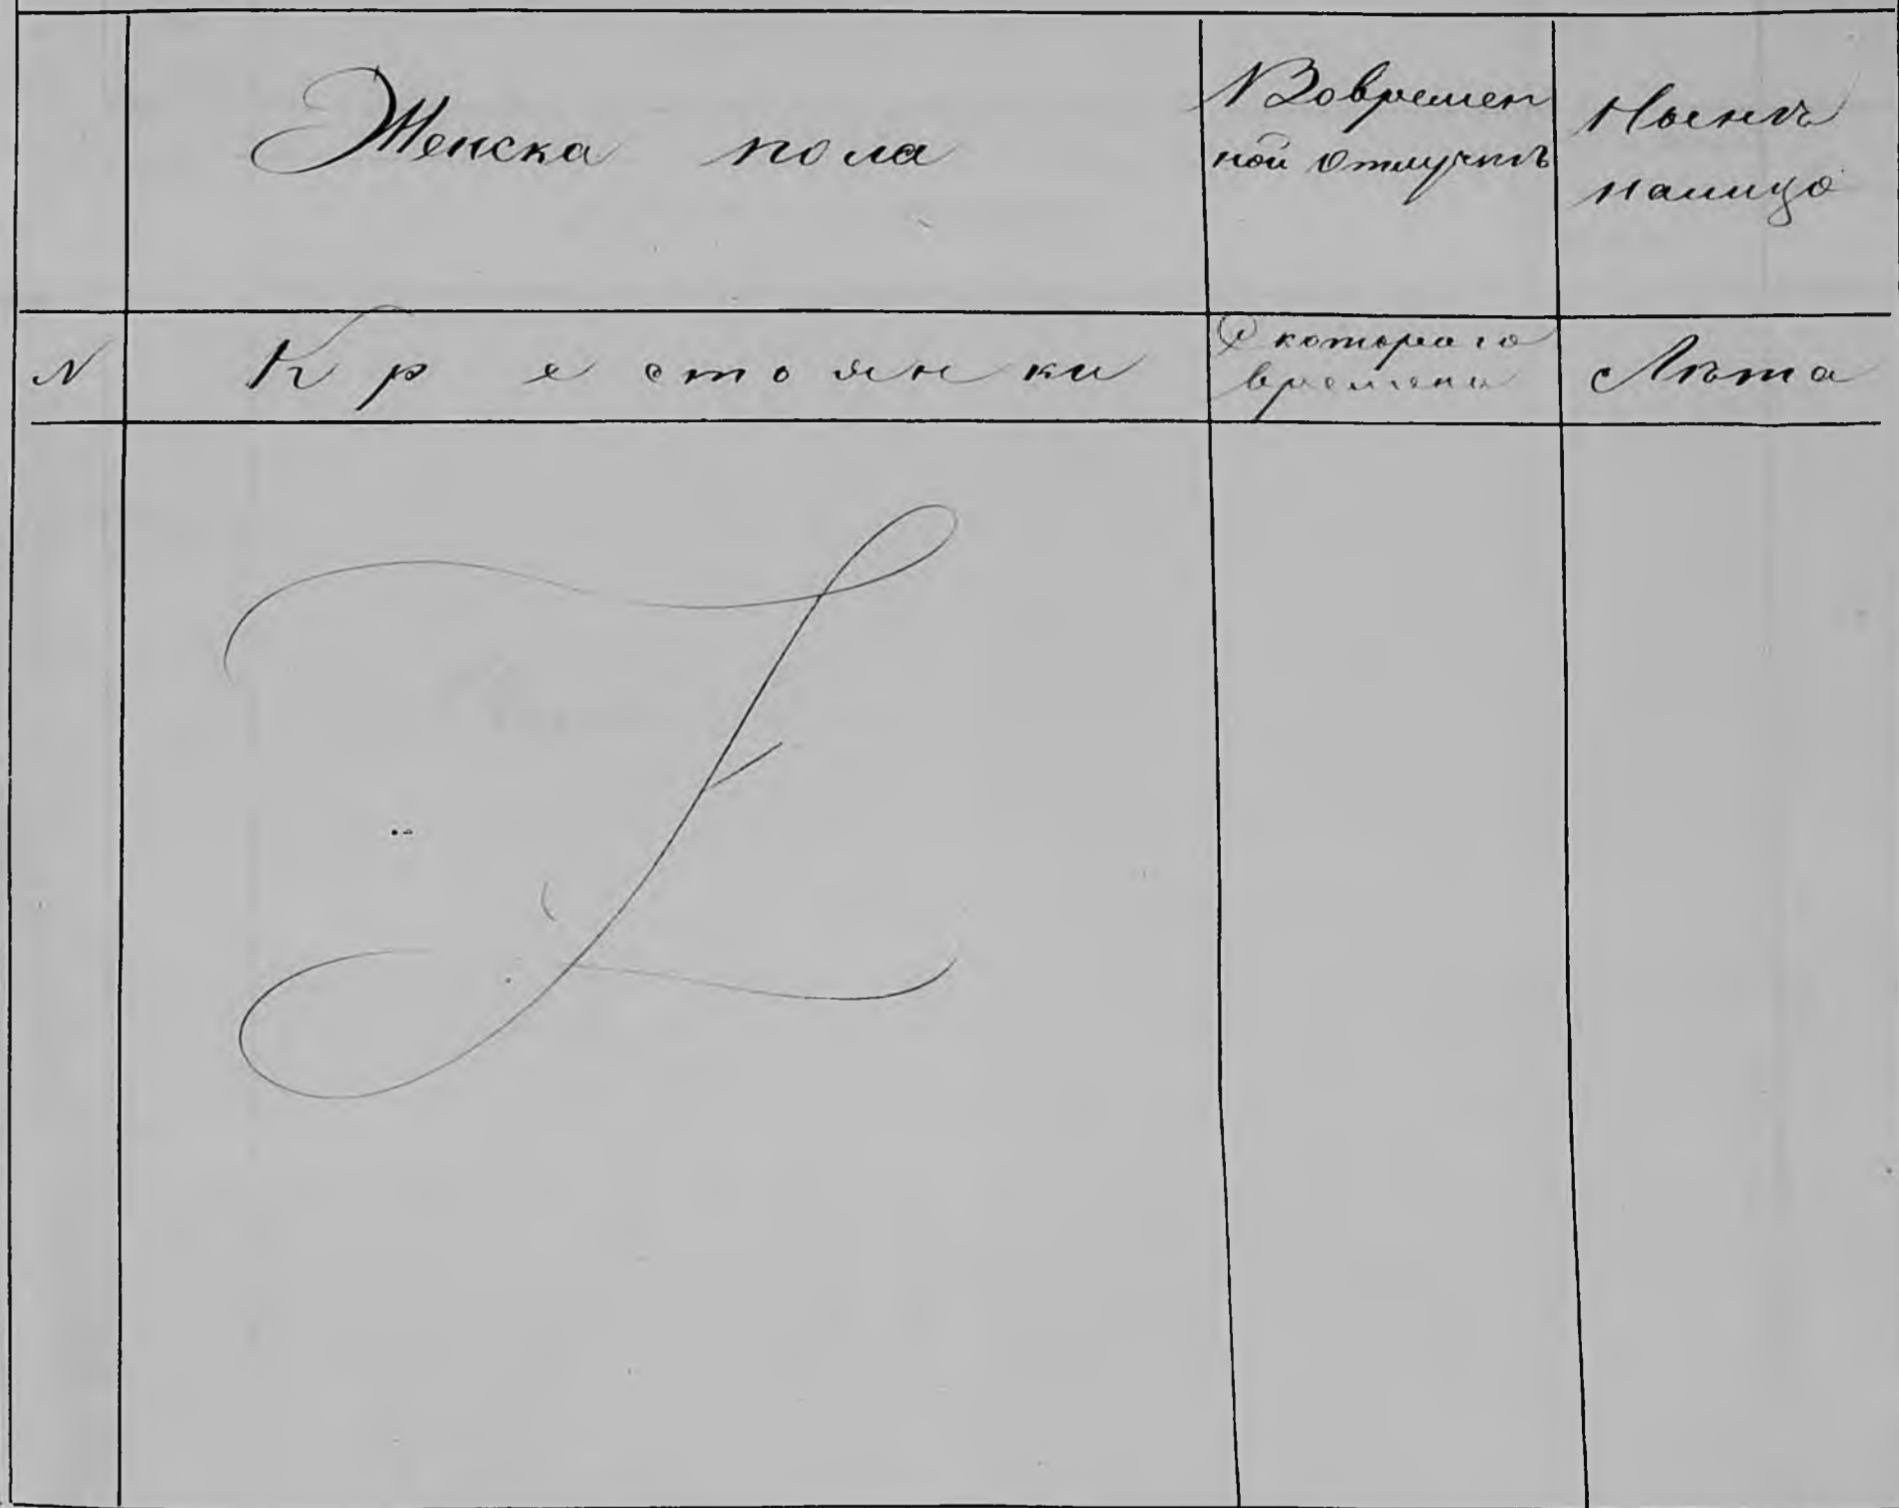 Женска пола
Вовремен
ной отлучкѣ
Нынѣ
налицо
N
Крестоянки
С котораго
времени
Лѣта